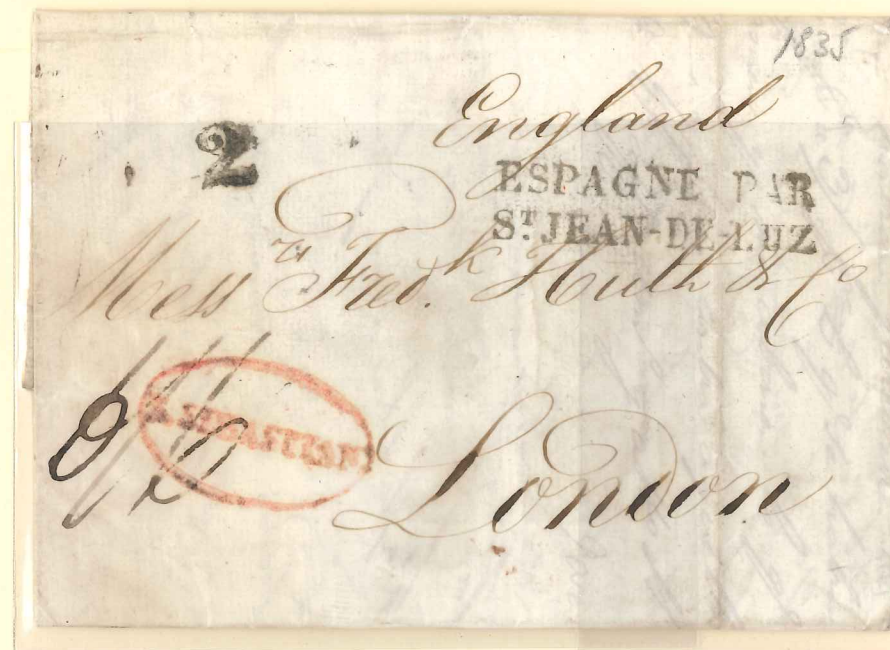 1835
England
2
ESPAGNE PAR
ST JEAN-DE-LUZ
Messrs Fredk Huth & Co
S. SEBASTIAN
London